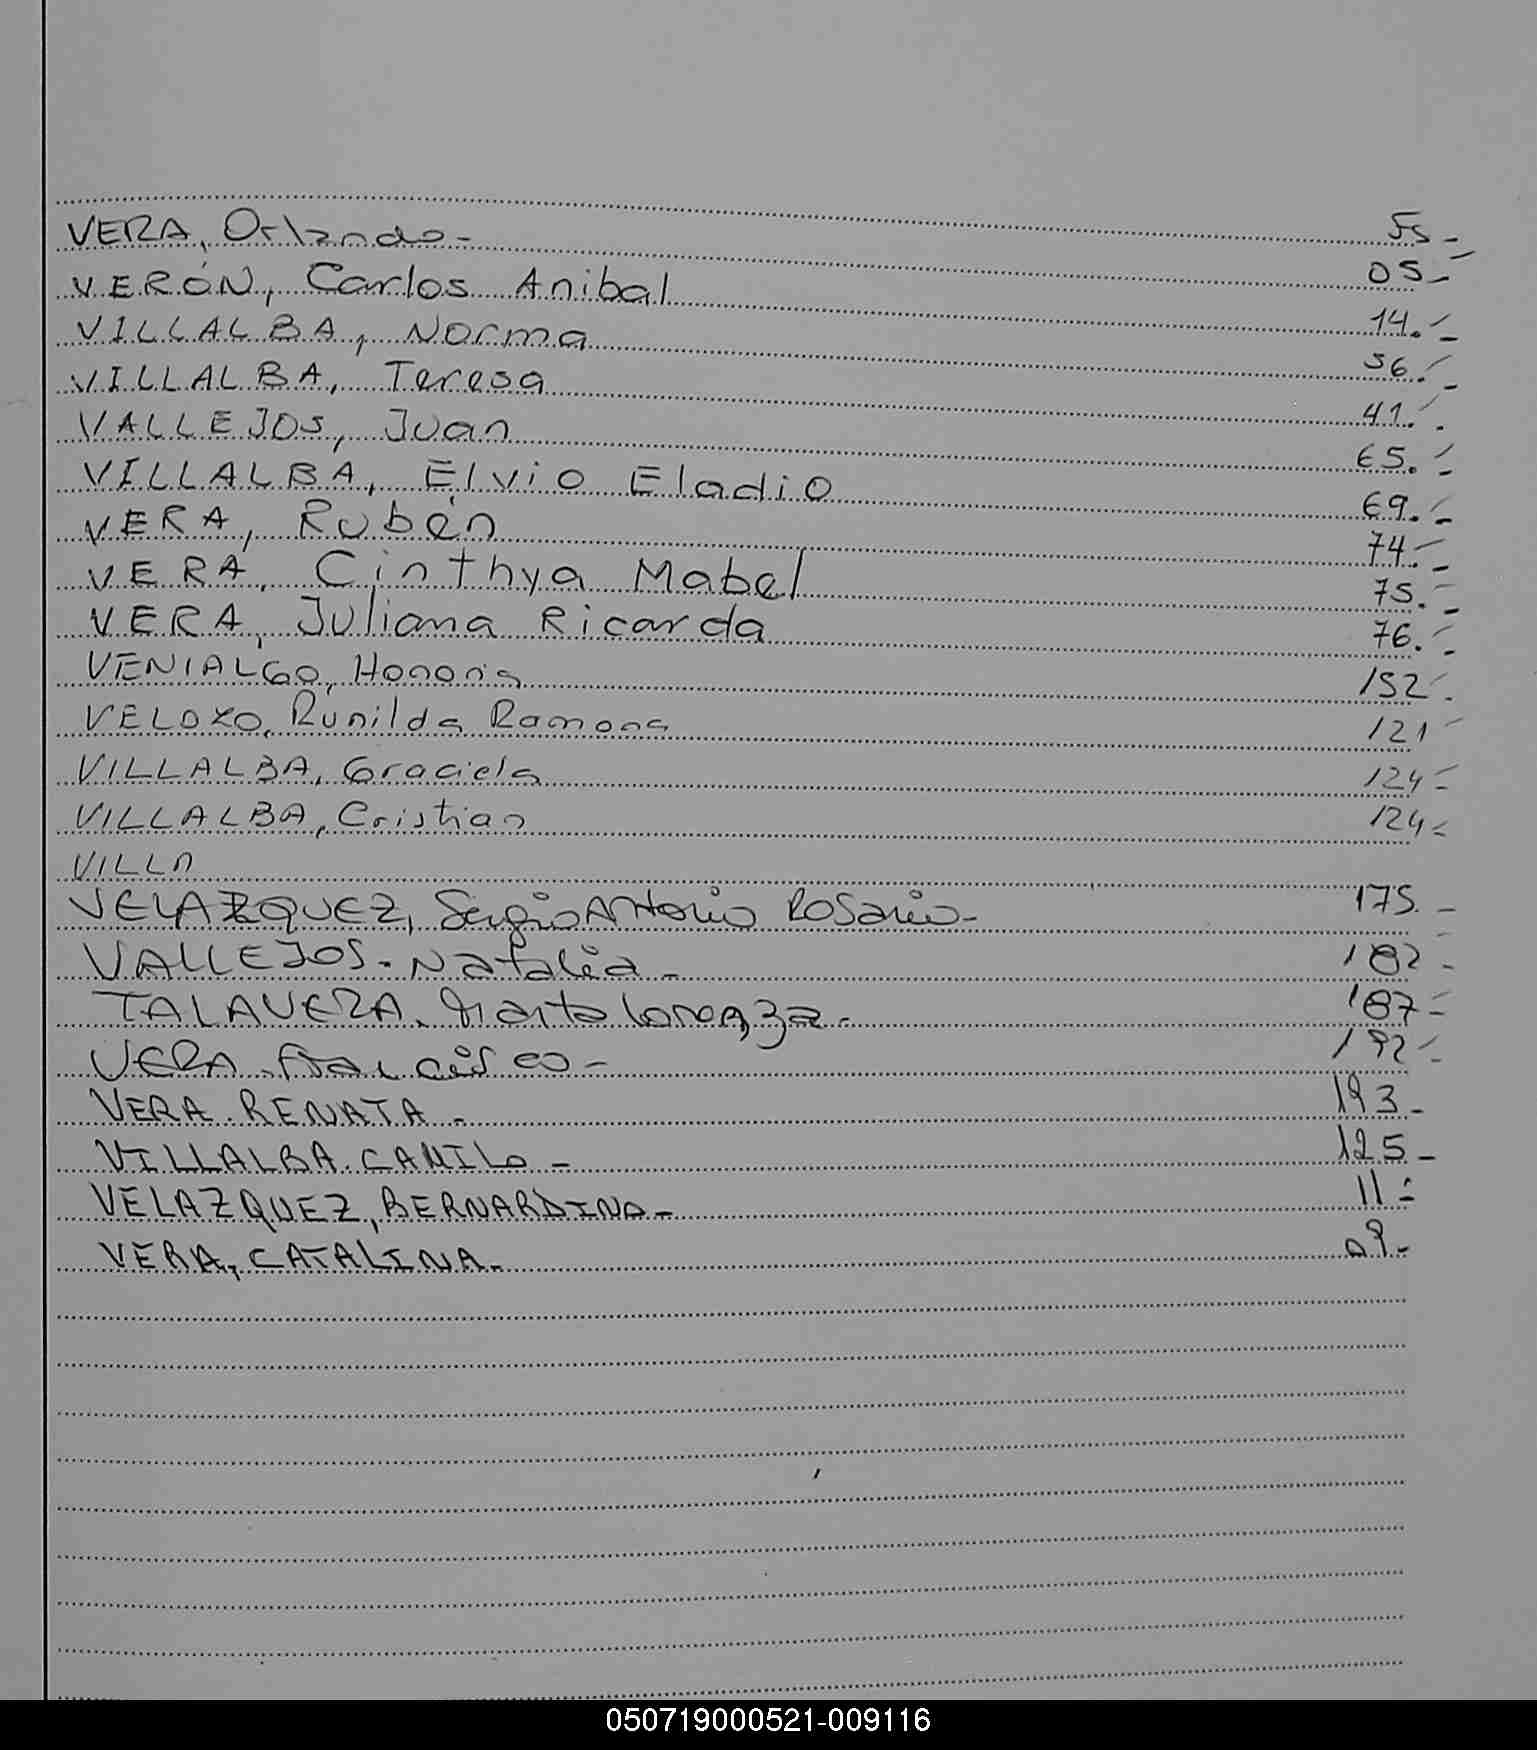 VERA, Orlando- 55-
VERÓN, Carlos Anibal 05.-
VILLALBA, Norma 14.-
VILLALBA, Teresa 56.-
VALLEJOS, Juan 41.-
VILLALBA, Elvio Eladio 65.-
VERA, Rubén 69.-
VERA, Cinthya Mabel 74.-
VERA, Juliana Ricarda 75.-
VERA, 76.-
VENIALGO, Honoria 152-
VELOXO, Runilda Ramona 121-
VILLALBA, Graciela 124-
VILLALBA, Cristian 124-
VILLA
VELAZQUEZ, Sergio Antonio Rosario- 175.-
VALLEJOS. Natalia- 182-
TALAVERA. Marta 187-
VERA. Francisco- 192-
VERA. RENATA.- 193-
VILLALBA. CAMILO- 125-
VELAZQUEZ, BERNARDINO- 11.-
VERA, CATALINA.- 09-
050719000521-009116